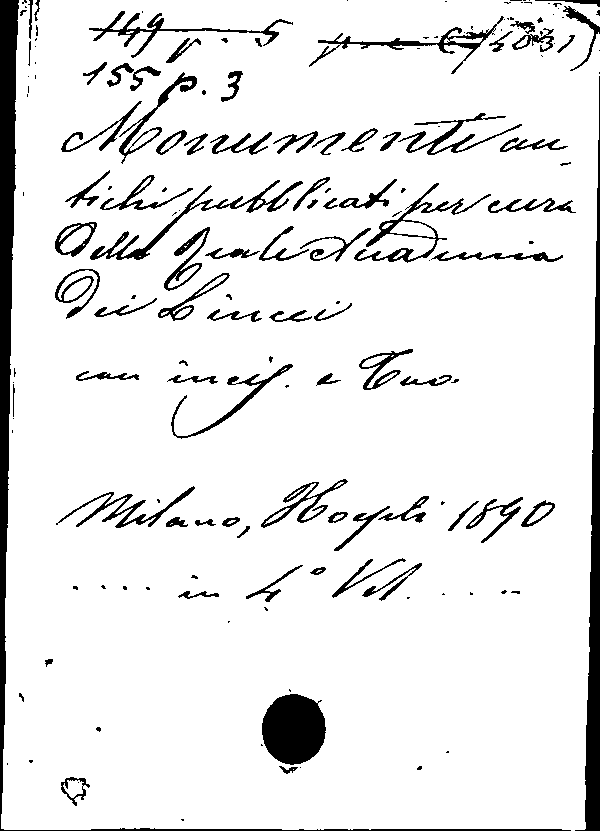 149 p. 5
155 p. 3
Monumenti an-
tichi pubblicati per cura
della Reale Accademia
dei Lincei
con incis. e Tav.
Milano, Hoepli 1890
.... in 4° Vol. .....